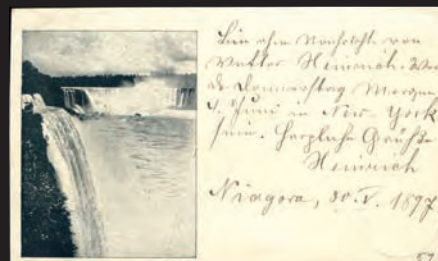 Bin ohne Nachricht von
Vetter Heinrich. Wer
de Donnerstag Morgen
Juni in New-York
sein. Herzliche Grüße
Heinrich
Niagara, 30. V. 1897